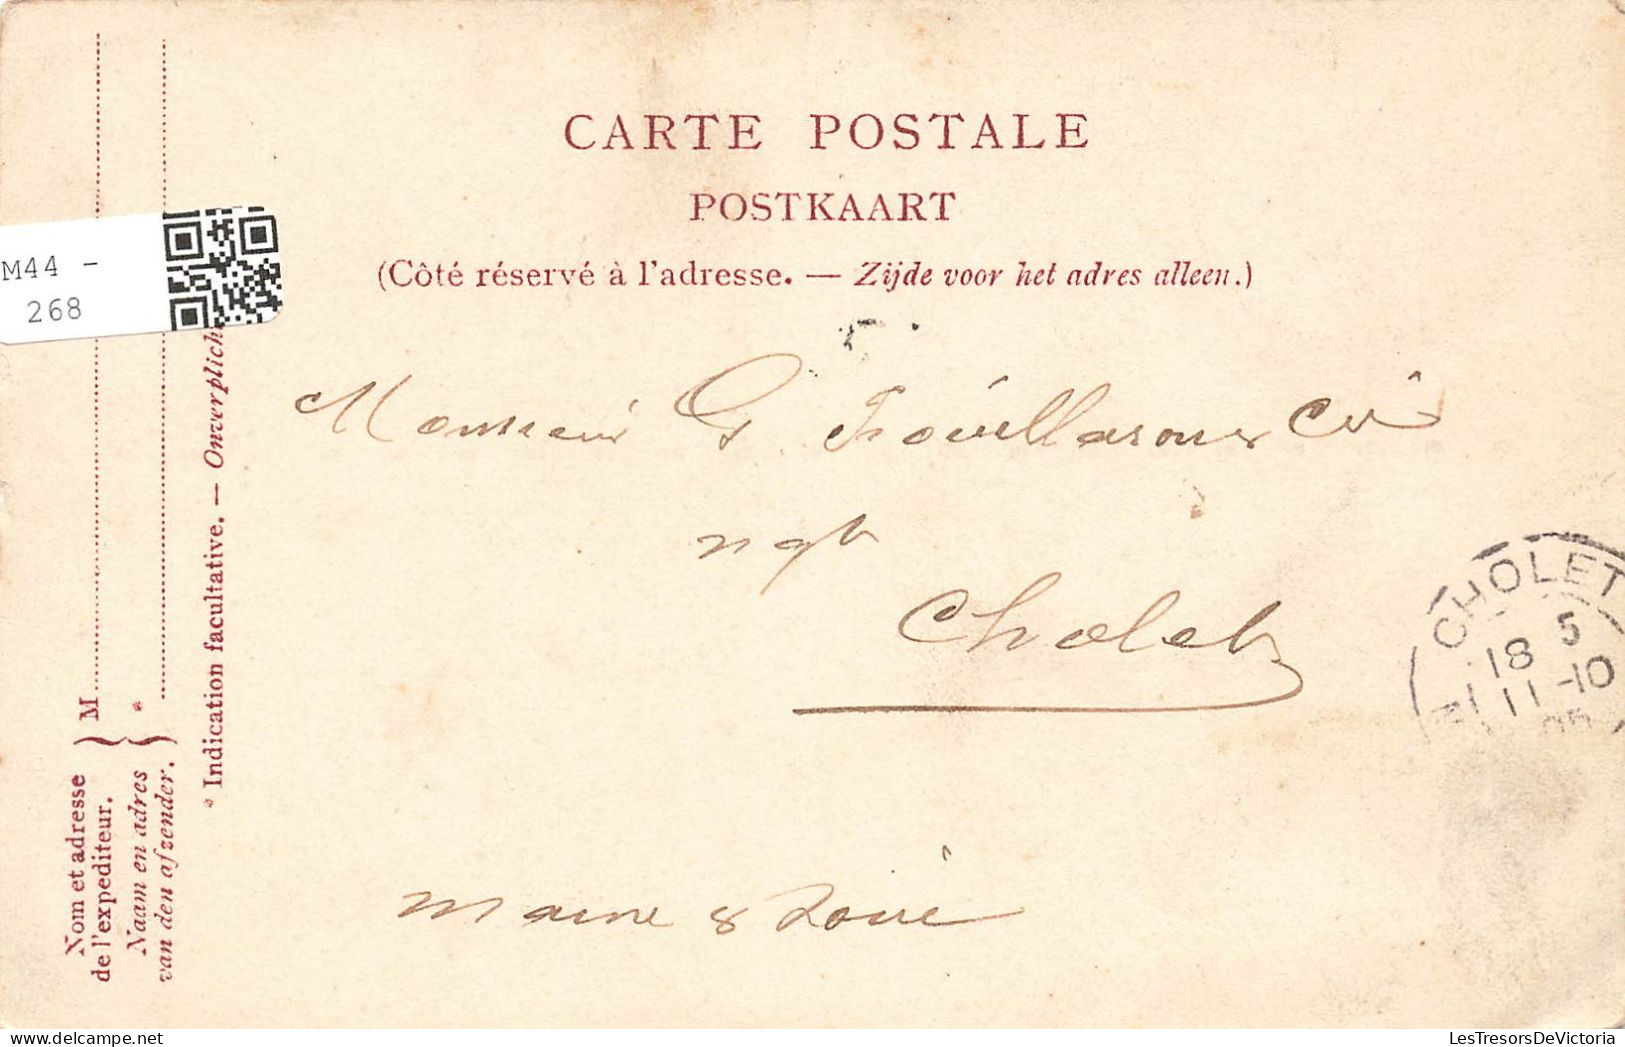 CARTE POSTALE
POSTKAART
(Côté réservé à l'adresse. — Zijde voor het adres alleen.)
M44 -
268
Monsieur G
ngt
Cholet
Maine & Loire
CHOLET
18 5
11 -10
05
M
Nom et adresse
de l'expediteur.
Naam en adres
van den afzender.
*
* Indication facultative. — Onverplich
LesTresorsDeVictoria